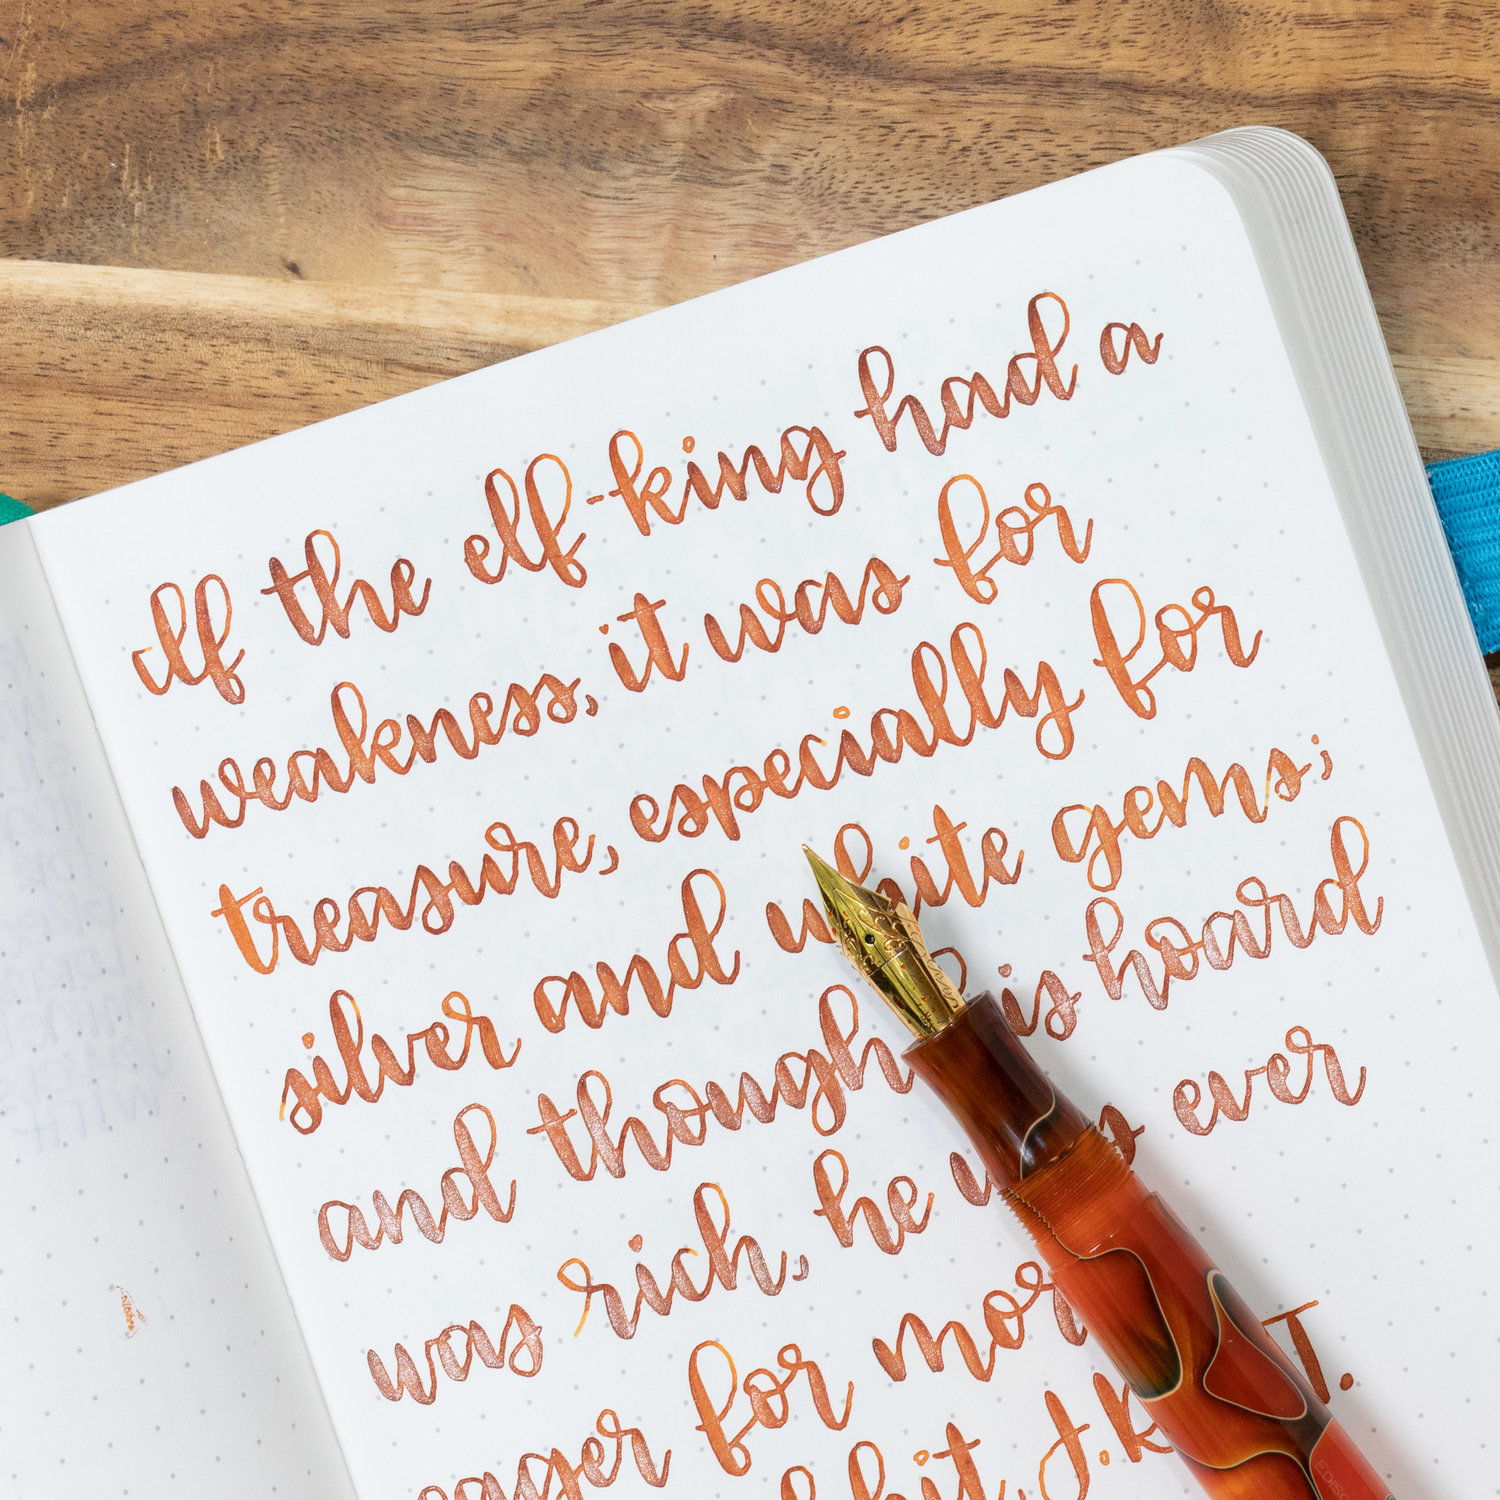 If the elf-king had a
weakness, it was for
treasure, especially for
silver and white gems;
and though his hoard
was rich, he was ever
eager for more
J.R. T.